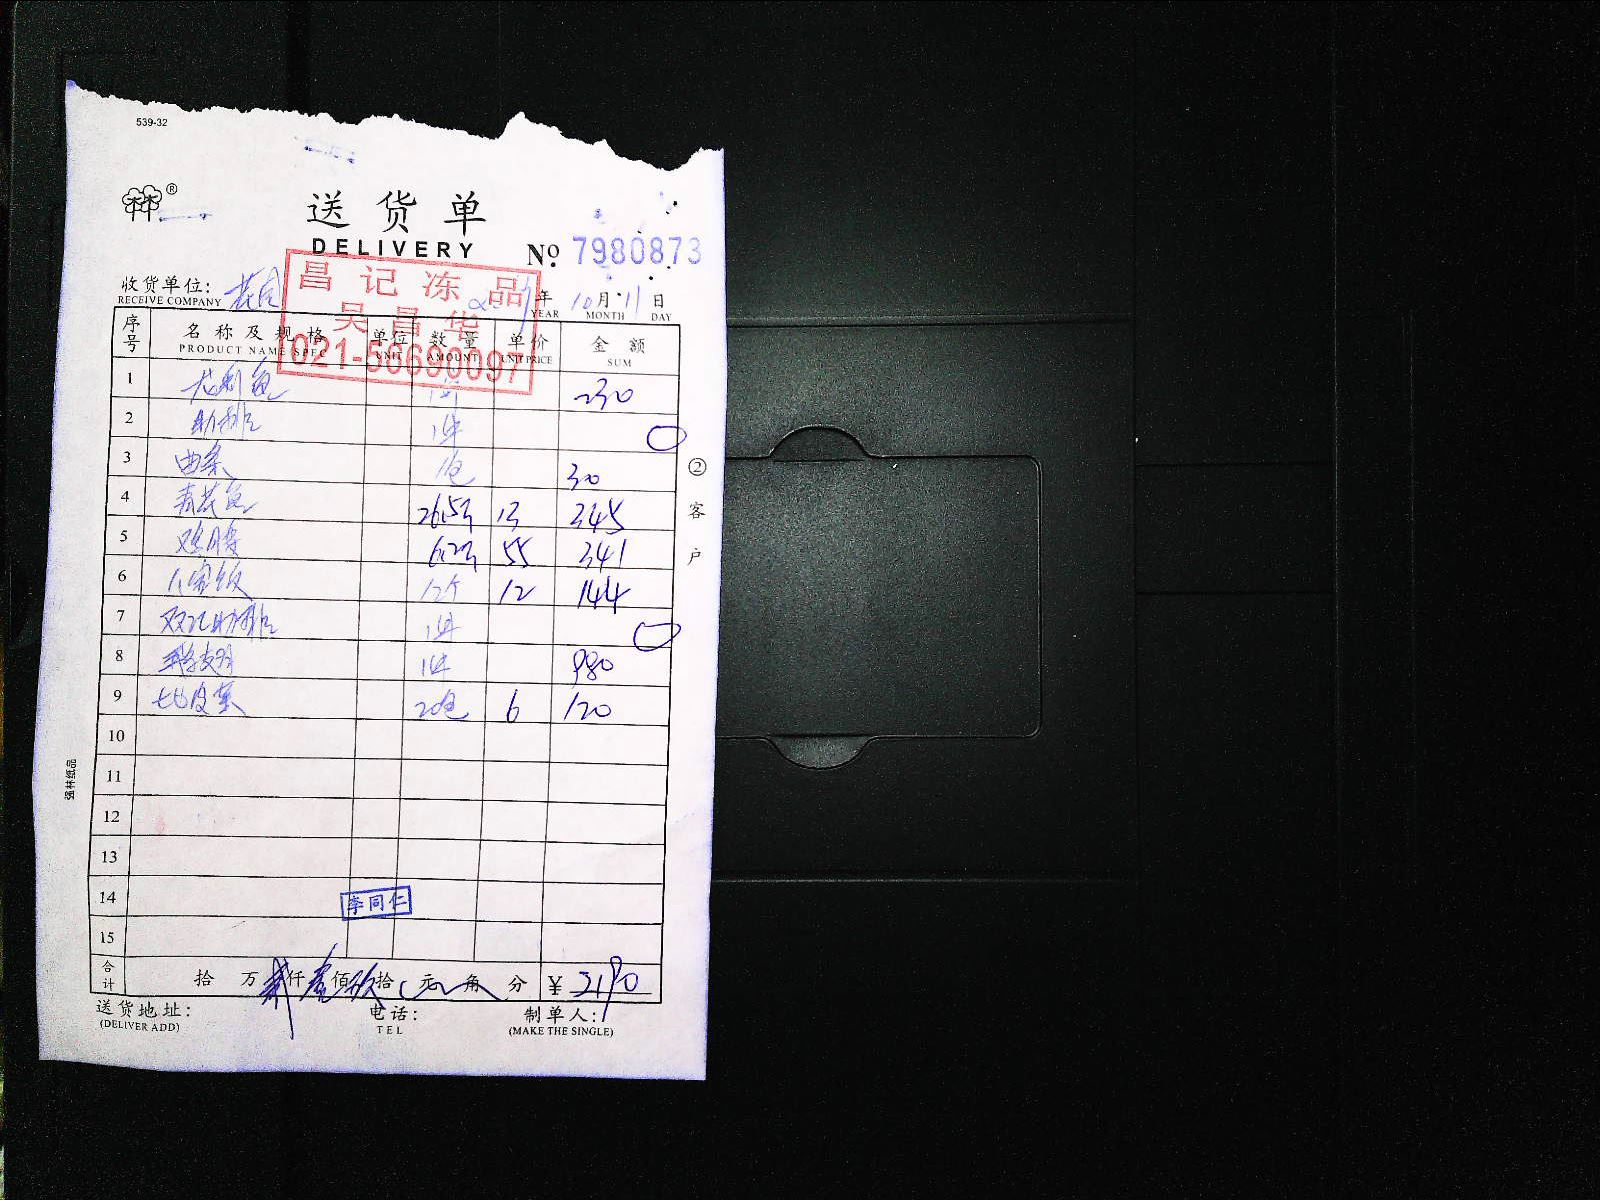 539-32
®
送货单
DELIVERY
No. 7980873
收货单位: 花园
RECEIVE COMPANY
年 10月11日
YEAR MONTH DAY
昌记冻品
吴昌华
021-56690097
序号 名称及规格 单位 数量 单价 金额
PRODUCT NAME SPEC UNIT AMOUNT UNIT PRICE SUM
1 龙利鱼 1件 230
2 肋排 1件
3 1包 30
4 青花鱼 26.5斤 13 345
5 6.2斤 55 341
6 八宝饭 12个 12 144
7 双汇肋排 1件
8 1件 980
9 地皮菜 20包 6 120
10
11
12
13
14
15
李同仁
合计 拾 万 贰仟壹佰玖拾 元 角 分 ¥ 2190
送货地址: 电话: 制单人:
(DELIVER ADD) TEL (MAKE THE SINGLE)
②客户
强林纸品